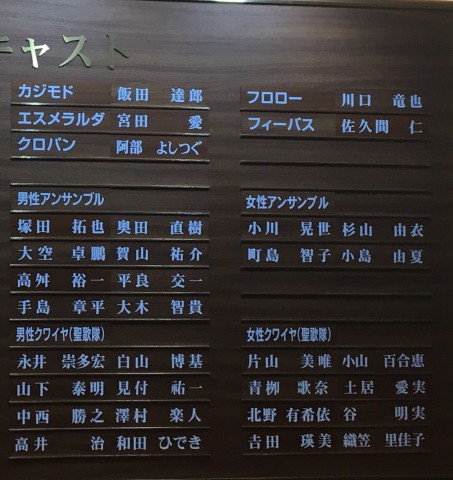 キャスト
カジモド 飯田 達郎
エスメラルダ 宮田 愛
クロパン 阿部 よしつぐ
フロロー 川口 竜也
フィーバス 佐久間 仁
男性アンサンブル
塚田 拓也 奥田 直樹
大空 卓鵬 賀山 祐介
高舛 裕一 平良 交一
手島 章平 大木 智貴
女性アンサンブル
小川 晃世 杉山 由衣
町島 智子 小島 由夏
男性クワイヤ(聖歌隊)
永井 崇多宏 白山 博基
山下 泰明 見付 祐一
中西 勝之 澤村 楽人
高井 治 和田 ひでき
女性クワイヤ(聖歌隊)
片山 美唯 小山 百合恵
青栁 歌奈 土居 愛実
北野 有希依 谷 明実
吉田 瑛美 織笠 里佳子